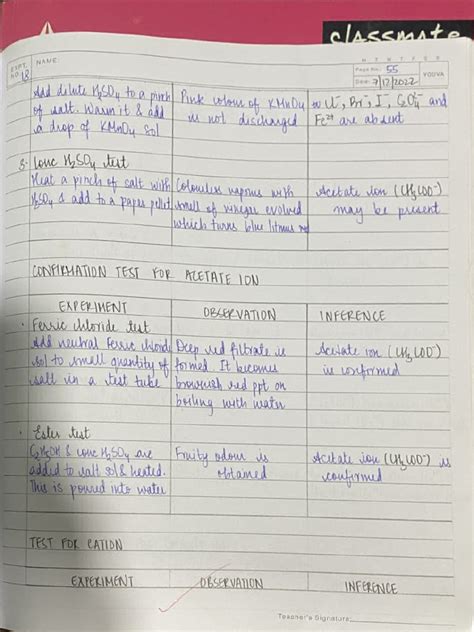 classmate
EXPT. NO. 18
NAME:
M T W T F S S
Page No.: 55
Date: 7/12/2022
YOUVA
Add dilute H2SO4 to a pinch
of salt. Warm it & add
a drop of KMnO4 sol
Pink colour of KMnO4
is not discharged
Cl⁻, Br⁻, I⁻, C2O4²⁻ and
Fe²⁺ are absent
3. Conc H2SO4 test
Heat a pinch of salt with
H2SO4 & add to a paper pellet
Colourless vapours with
smell of vinegar evolved
which turns blue litmus red
Acetate ion (CH3COO⁻)
may be present
CONFIRMATION TEST FOR ACETATE ION
EXPERIMENT
OBSERVATION
INFERENCE
• Ferric chloride test
Add neutral ferric chloride
sol to small quantity of
salt in a test tube
Deep red filtrate is
formed. It becomes
brownish red ppt on
boiling with water
Acetate ion (CH3COO⁻)
is confirmed
• Ester test
C2H5OH & conc H2SO4 are
added to salt sol & heated.
This is poured into water
Fruity odour is
obtained
Acetate ion (CH3COO⁻) is
confirmed
TEST FOR CATION
EXPERIMENT
OBSERVATION
INFERENCE
Teacher's Signature: